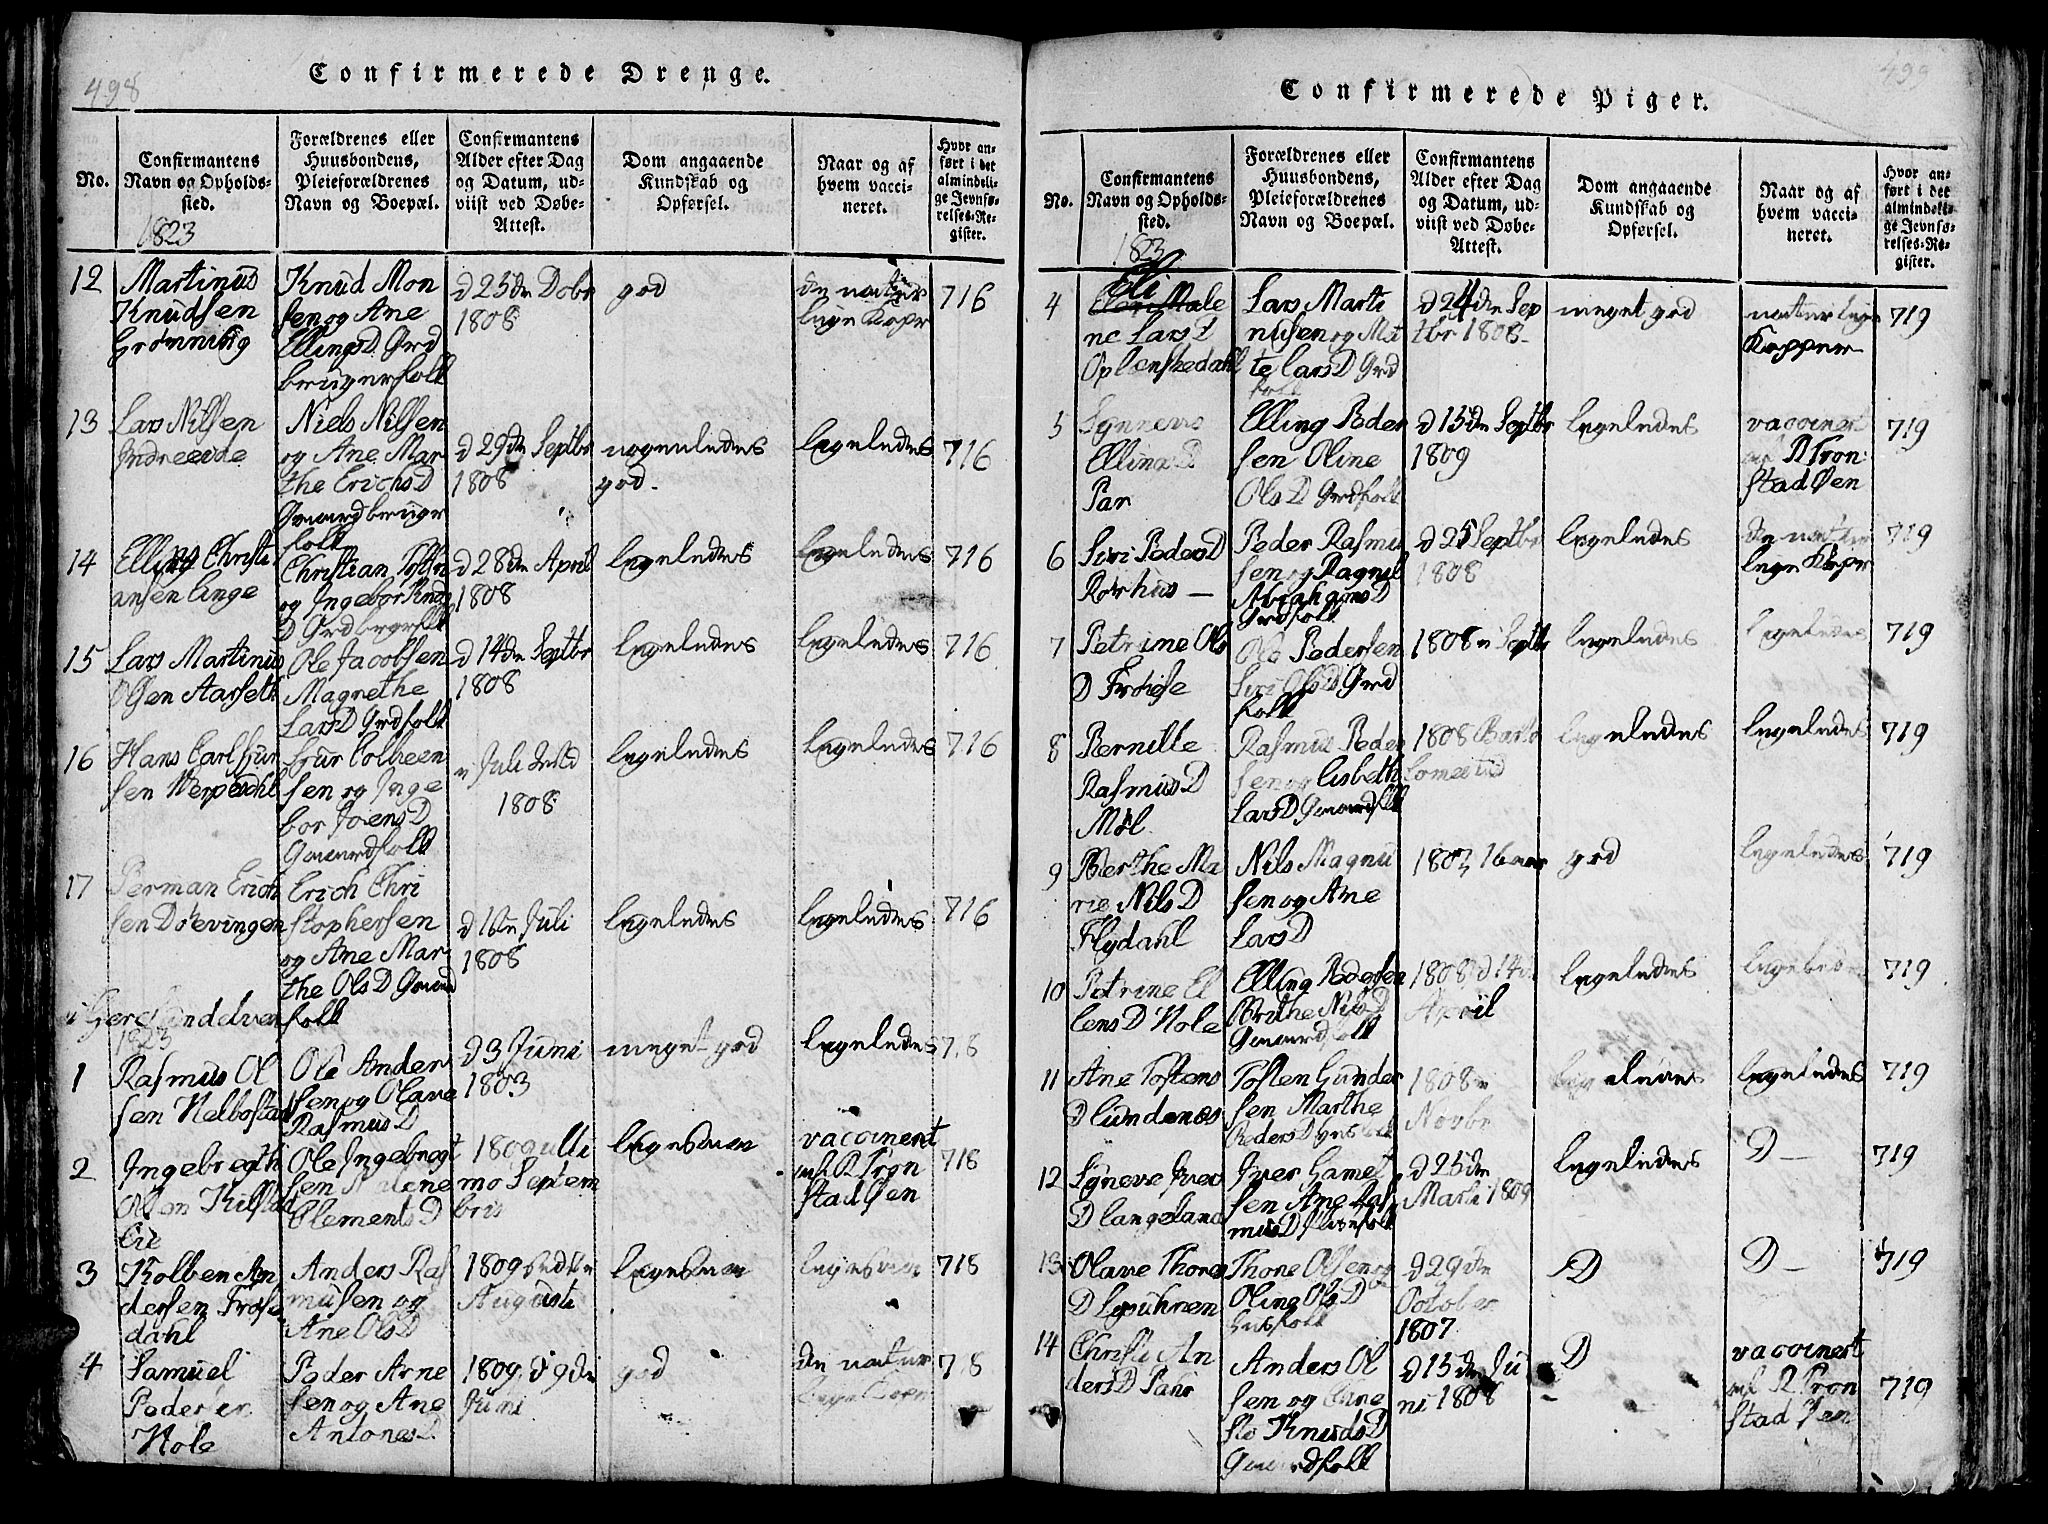 498
Confirmerede Drenge.
No.
Confirmantens
Navn og Opholds-
sted.
Forældrenes eller
Huusbondens,
Pleieforældrenes
Navn og Boepæl.
Confirmantens
Alder efter Dag
og Datum, ud-
viist ved Døbe-
Attest.
Dom angaaende
Kundskab og
Opførsel.
Naar og af
hvem vacci-
neret.
Hvor an-
ført i det
almindeli-
ge Jevnfø-
relses-Re-
gister.
1823
12
Martinus
Knudsen
Grønning
Knud Mon
sen og Ane
EllingsD Grd
brugerfolk
d 25de
1808
god
de natur
lige Kopr
716
13
Lars Nilsen
Indreeide
Niels Nilsen
og Ane Mar
the ErichsD
Gaardbrugr
folk
d 29de Septbr
1808
nogenledes
god
ligeledes
716
14
Elling Christi
ansen Lange
Christian
og Ingebor Knud
D Grd brgrfolk
d 28de April
1808
ligeledes
ligeledes
716
15
Lars Martinus
Olsen Aarseth
Ole Jacobsen
Magrethe
LarsD Grdfolk
d 14de Septbr
1808
ligeledes
ligeledes
716
16
Hans Carl
sen
sen og Inge
bor JoensD
Gaardfolk
Juli
1808
ligeledes
ligeledes
716
17
Perman Erich
sen Døevingen
Erich Chri
stophersen
og Ane Mar
the OlsD Gaard
folk
Juli
1808
ligeledes
ligeledes
716
1823
1
Rasmus Ol
sen Helbostad
Ole Ander
sen og Olave
RasmusD
d 3 Juni
1803
meget god
ligeledes
718
2
Ingebregth
Olsen Kilstad
Lie
Ole Ingebregt
sen Malene
ClementsD
1809 ulti
mo Septem
bris
ligesaa
vaccinert
af R Tron
stad Øen
718
3
Kolben An
dersen Frøise
dahl
Anders Ras
musen og
Ane OlsD
1809
Augusti
ligesaa
ligesaa
718
4
Samuel
Peder
Hole
Peder Arne
sen og Ane
AntonesD
1809 d 9de
Juni
god
de natur
lige Kopr
718
499
Confirmerede Piger.
No.
Confirmantens
Navn og Opholds-
sted.
Forældrenes eller
Huusbondens,
Pleieforældrenes
Navn og Boepæl.
Confirmantens
Alder efter Dag
og Datum, ud-
viist ved Døbe-
Attest.
Dom angaaende
Kundskab og
Opførsel.
Naar og af
hvem vacci-
neret.
Hvor an-
ført i det
almindeli-
ge Jevnfø-
relses-Re-
gister.
1823
4
Eli Male
ne LarsD
Oplenskedahl
Lars Marti
nusen og Mal
te LarsD Grd
folk
d 24de Sep
tbr 1808
meget god
naturlige
Kopper
719
5
Synneve
EllingsD
Par
Elling Peder
sen Oline
OlsD Grdfolk
d 15de Septbr
1809
ligeledes
vaccinert
af R Tron
stad Øen
719
6
Siri PedersD
Rørhus
Peder Rasmu
sen og Ragnil
AbrahamsD
Grdfolk
d 25 Septbr
1808
ligeledes
de natur
lige Kopr
719
7
Petrine Ols
D Frøise
Ole Pedersen
Siri OlsD Grd
folk
1808 i Septbr
ligeledes
ligeledes
719
8
Pernille
RasmusD
Møl
Rasmus Peder
sen og Lisbeth
LarsD Gaardfolk
1808 Bartho
lomei tid
ligeledes
ligeledes
719
9
Berthe Ma
rie NilsD
Flydahl
Nils Magnu
sen og Ane
LarsD
1807 16 aar
god
ligeledes
719
10
Petrine El
lensD Hole
Elling Pedersen
Brithe NilsD
Gaardfolk
1808 d 14de
April
ligeledes
ligeledes
719
11
Ane Tostens
D Lundenæs
Tosten Gunder
sen Marthe
PedersD Husfolk
1808 i
Novbr
ligeledes
ligeledes
719
12
Sÿneve Iver
D Langeland
Iver Gamel
sen Ane Ras
musD
d 25de
Marti 1809
ligeledes
D
719
13
Olave Thores
D
Thore Olsen og
Oline OlsD
Husfolk
d 29de
October
1807
D
D
719
14
Christi An
dersD Pahr
Anders Ol
sen og Ane
KnudsD
Gaardfolk
d 15de Ju
ni 1808
D
vaccinert
af R Tron
stad Øen
719